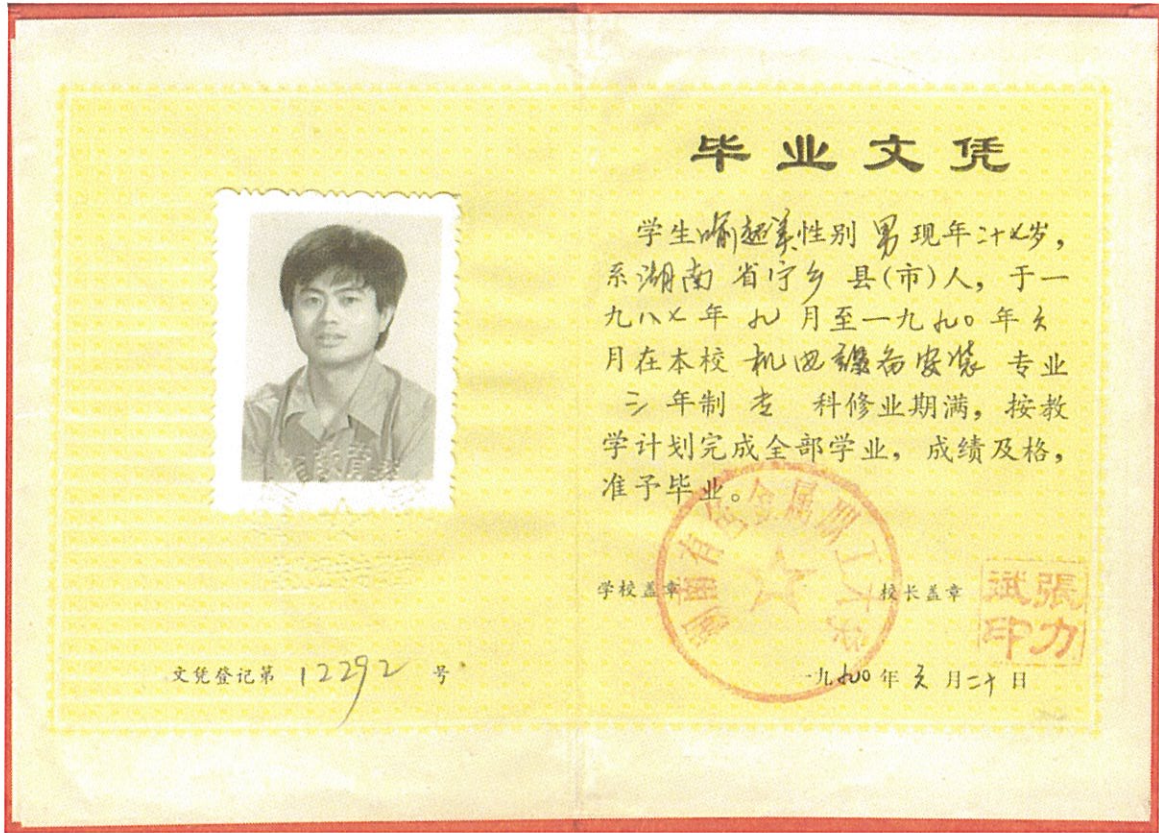 毕业文凭
学生喻超美性别 男 现年二十七岁，
系湖南 省宁乡 县(市)人，于一
九八七 年 九 月至一九九〇 年 六
月在本校 机电设备安装 专业
三 年制 专 科修业期满，按教
学计划完成全部学业，成绩及格，
准予毕业。
湖南有色金属职工大学
学校盖章
校长盖章
張力
斌印
一九九〇年 六 月二十 日
文凭登记第 12292 号